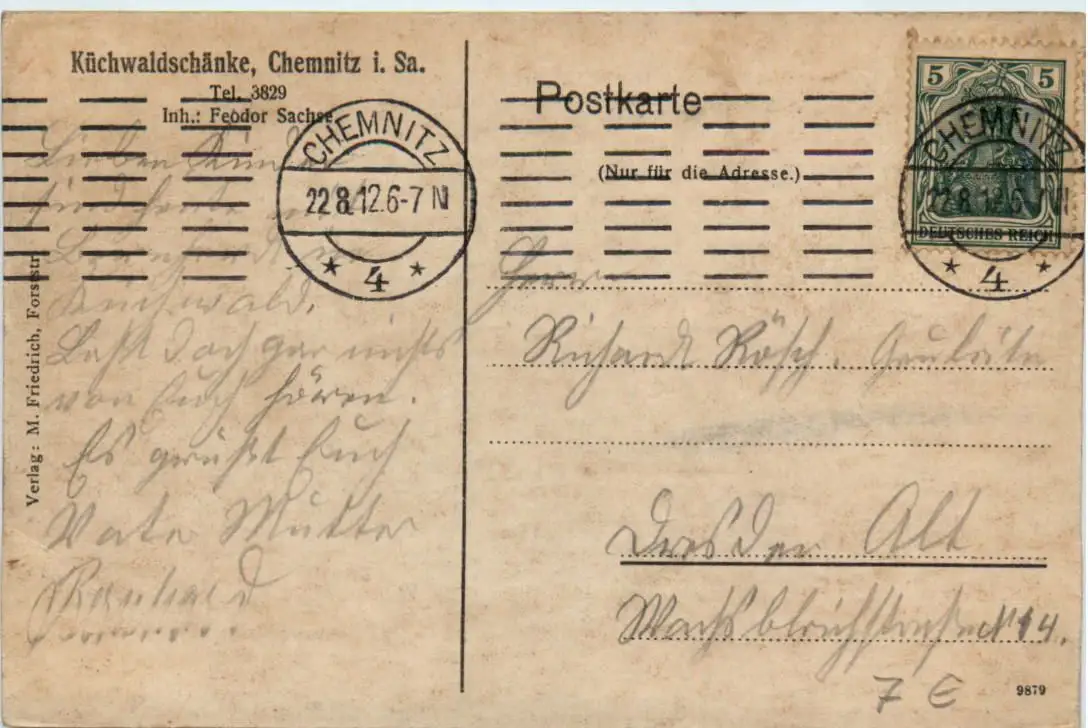 Küchwaldschänke, Chemnitz i. Sa.
Tel. 3829
Inh.: Feodor Sachse
Lieben Kinder
sind heute
Küchwald.
Laßt doch gar nichts
von Euch hören.
Es grüßt Euch
Vater Mutter
Verlag: M. Friedrich, Forststr.
CHEMNITZ
22.8.12.6-7 N
* 4 *
Postkarte
(Nur für die Adresse.)
5 5
DEUTSCHES REICH
CHEMNITZ
22.8.12.6-7 N
* 4 *
Herrn
Richard Rösch.
Dresden Alt
No 14.
7 E
9879